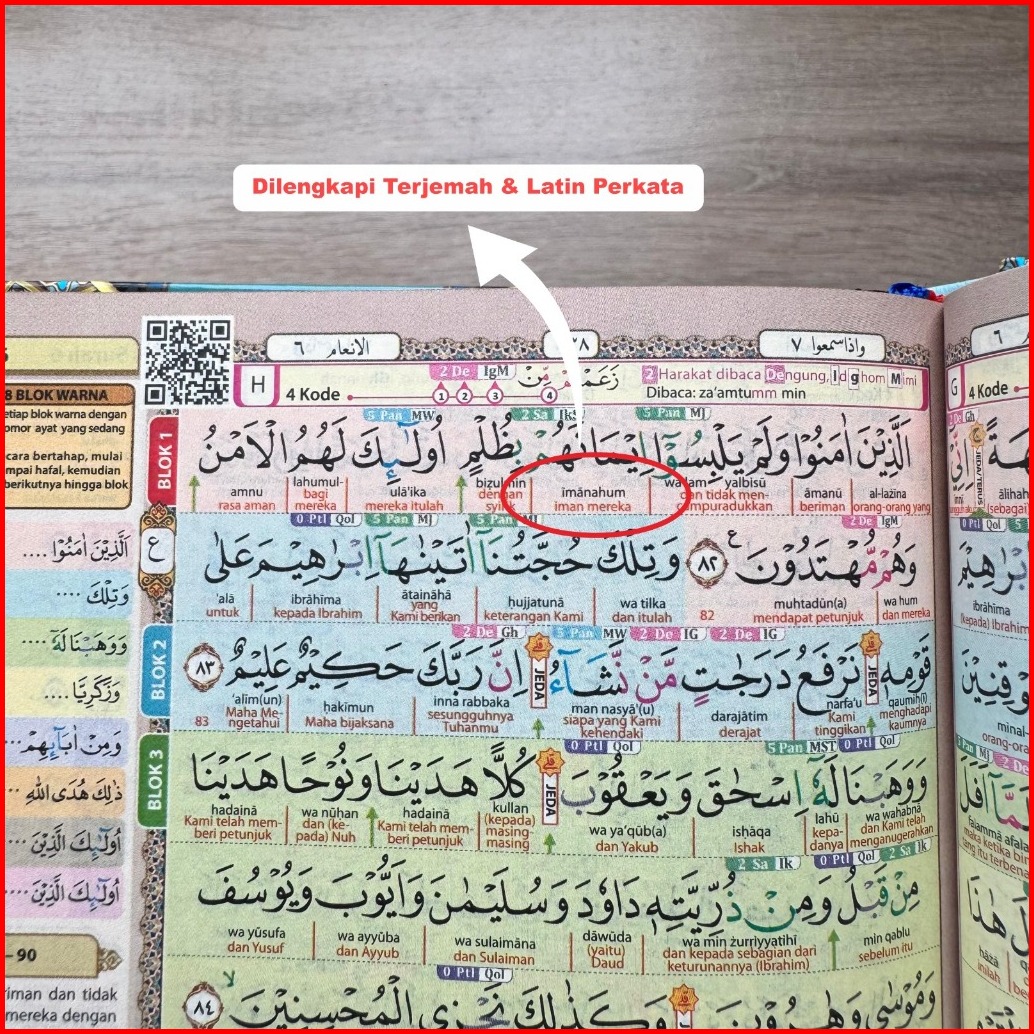 Dilengkapi Terjemah & Latin Perkata
الانعام ٦
واذاسمعوا ٧
H
4 Kode
2 De IgM
1 2 3 4
زَعَمْتُمْ مِّنْ
2 Harakat dibaca Dengung, Idghom Mimi
Dibaca: za'amtumm min
8 BLOK WARNA
etiap blok warna dengan
omor ayat yang sedang
cara bertahap, mulai
mpai hafal, kemudian
berikutnya hingga blok
BLOK 1
5 Pan MW
2 Sa IkS
5 Pan MJ
اَلَّذِيْنَ اٰمَنُوْا وَلَمْ يَلْبِسُوْٓا اِيْمَانَهُمْ بِظُلْمٍ اُولٰۤىِٕكَ لَهُمُ الْاَمْنُ
al-lażīna āmanū yalbisū īmānahum ulā'ika lahumul- amnu
orang-orang yang beriman iman mereka mereka itulah bagi mereka rasa aman
0 Ptl Qol
5 Pan MJ
2 De IgM
وَهُمْ مُّهْتَدُوْنَ ࣖ ٨٢ وَتِلْكَ حُجَّتُنَآ اٰتَيْنٰهَآ اِبْرٰهِيْمَ عَلٰى
wa hum muhtadūn(a) wa tilka ḥujjatunā ātaināhā ibrāhīma 'alā
dan mereka mendapat petunjuk 82 dan itulah keterangan Kami yang Kami berikan kepada Ibrahim untuk
BLOK 2
2 De Gh
5 Pan MW
2 De IG
2 De IG
قَوْمِهٖ نَرْفَعُ دَرَجٰتٍ مَّنْ نَّشَاۤءُ اِنَّ رَبَّكَ حَكِيْمٌ عَلِيْمٌ ٨٣
JEDA
JEDA
qaumih(ī) narfa'u darajātim man nasyā'(u) inna rabbaka ḥakīmun 'alīm(un)
menghadapi kaumnya Kami tinggikan derajat siapa yang Kami kehendaki sesungguhnya Tuhanmu Maha bijaksana Maha Mengetahui 83
BLOK 3
0 Ptl Qol
5 Pan MST
0 Ptl Qol
وَوَهَبْنَا لَهٗٓ اِسْحٰقَ وَيَعْقُوْبَ كُلًّا هَدَيْنَا وَنُوْحًا هَدَيْنَا
JEDA
wa wahabnā lahū isḥāqa wa ya'qūb(a) kullan hadainā wa nūḥan hadainā
dan Kami telah menganugerahkan kepadanya Ishak dan Yakub (kepada) masing masing Kami telah memberi petunjuk dan (kepada) Nuh Kami telah memberi petunjuk
2 Sa Ik
0 Ptl Qol
2 Sa Ik
مِنْ قَبْلُ وَمِنْ ذُرِّيَّتِهٖ دَاوٗدَ وَسُلَيْمٰنَ وَاَيُّوْبَ وَيُوْسُفَ
min qablu wa min żurriyyatihī dāwūda wa sulaimāna wa ayyūba wa yūsufa
sebelum itu dan kepada sebagian dari keturunannya (Ibrahim) (yaitu) Daud dan Sulaiman dan Ayyub dan Yusuf
0 Ptl Qol
وَمُوْسٰى وَهٰرُوْنَ وَكَذٰلِكَ نَجْزِى الْمُحْسِنِيْنَ ٨٤
اَلَّذِيْنَ اٰمَنُوْا ....
وَتِلْكَ ....
وَوَهَبْنَا لَهٗ ....
وَزَكَرِيَّا ....
وَمِنْ اٰبَاۤىِٕهِمْ ...
ذٰلِكَ هُدَى اللّٰهِ ...
اُولٰۤىِٕكَ الَّذِيْنَ ...
اُولٰۤىِٕكَ الَّذِيْنَ ...
- 90
riman dan tidak
mereka dengan
G
4 Kode
ibrāhīma
(kepada) Ibrahim
minal-
falammā afala
maka ketika
hāżā
inilah